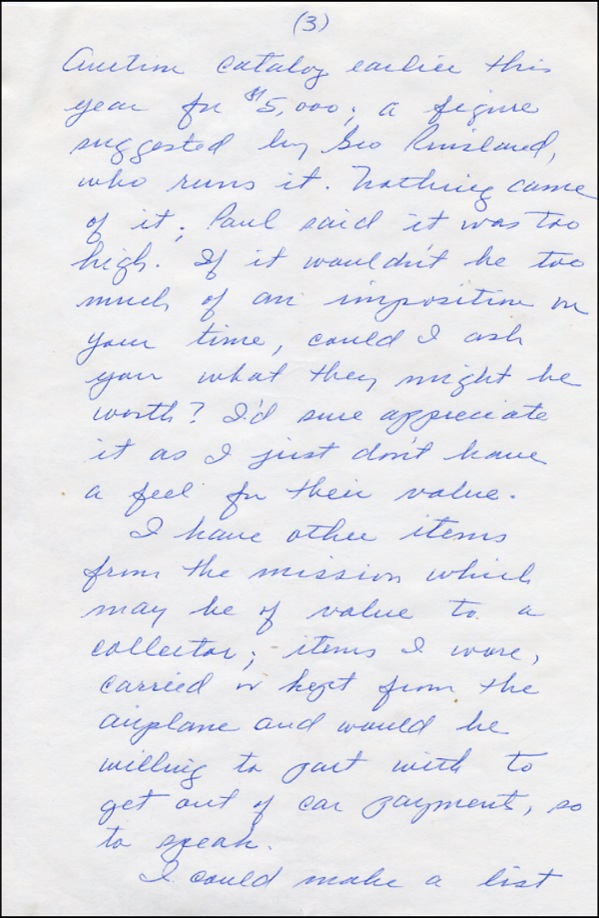 (3)
Auction catalog earlier this
year for $5,000; a figure
suggested by Geo Rinsland,
who runs it. Nothing came
of it; Paul said it was too
high. If it wouldn't be too
much of an imposition on
your time, could I ask
you what they might be
worth? I'd sure appreciate
it as I just don't have
a feel for their value.
I have other items
from the mission which
may be of value to a
collector; items I wore,
carried or kept from the
airplane and would be
willing to part with to
get out of car payments, so
to speak.
I could make a list